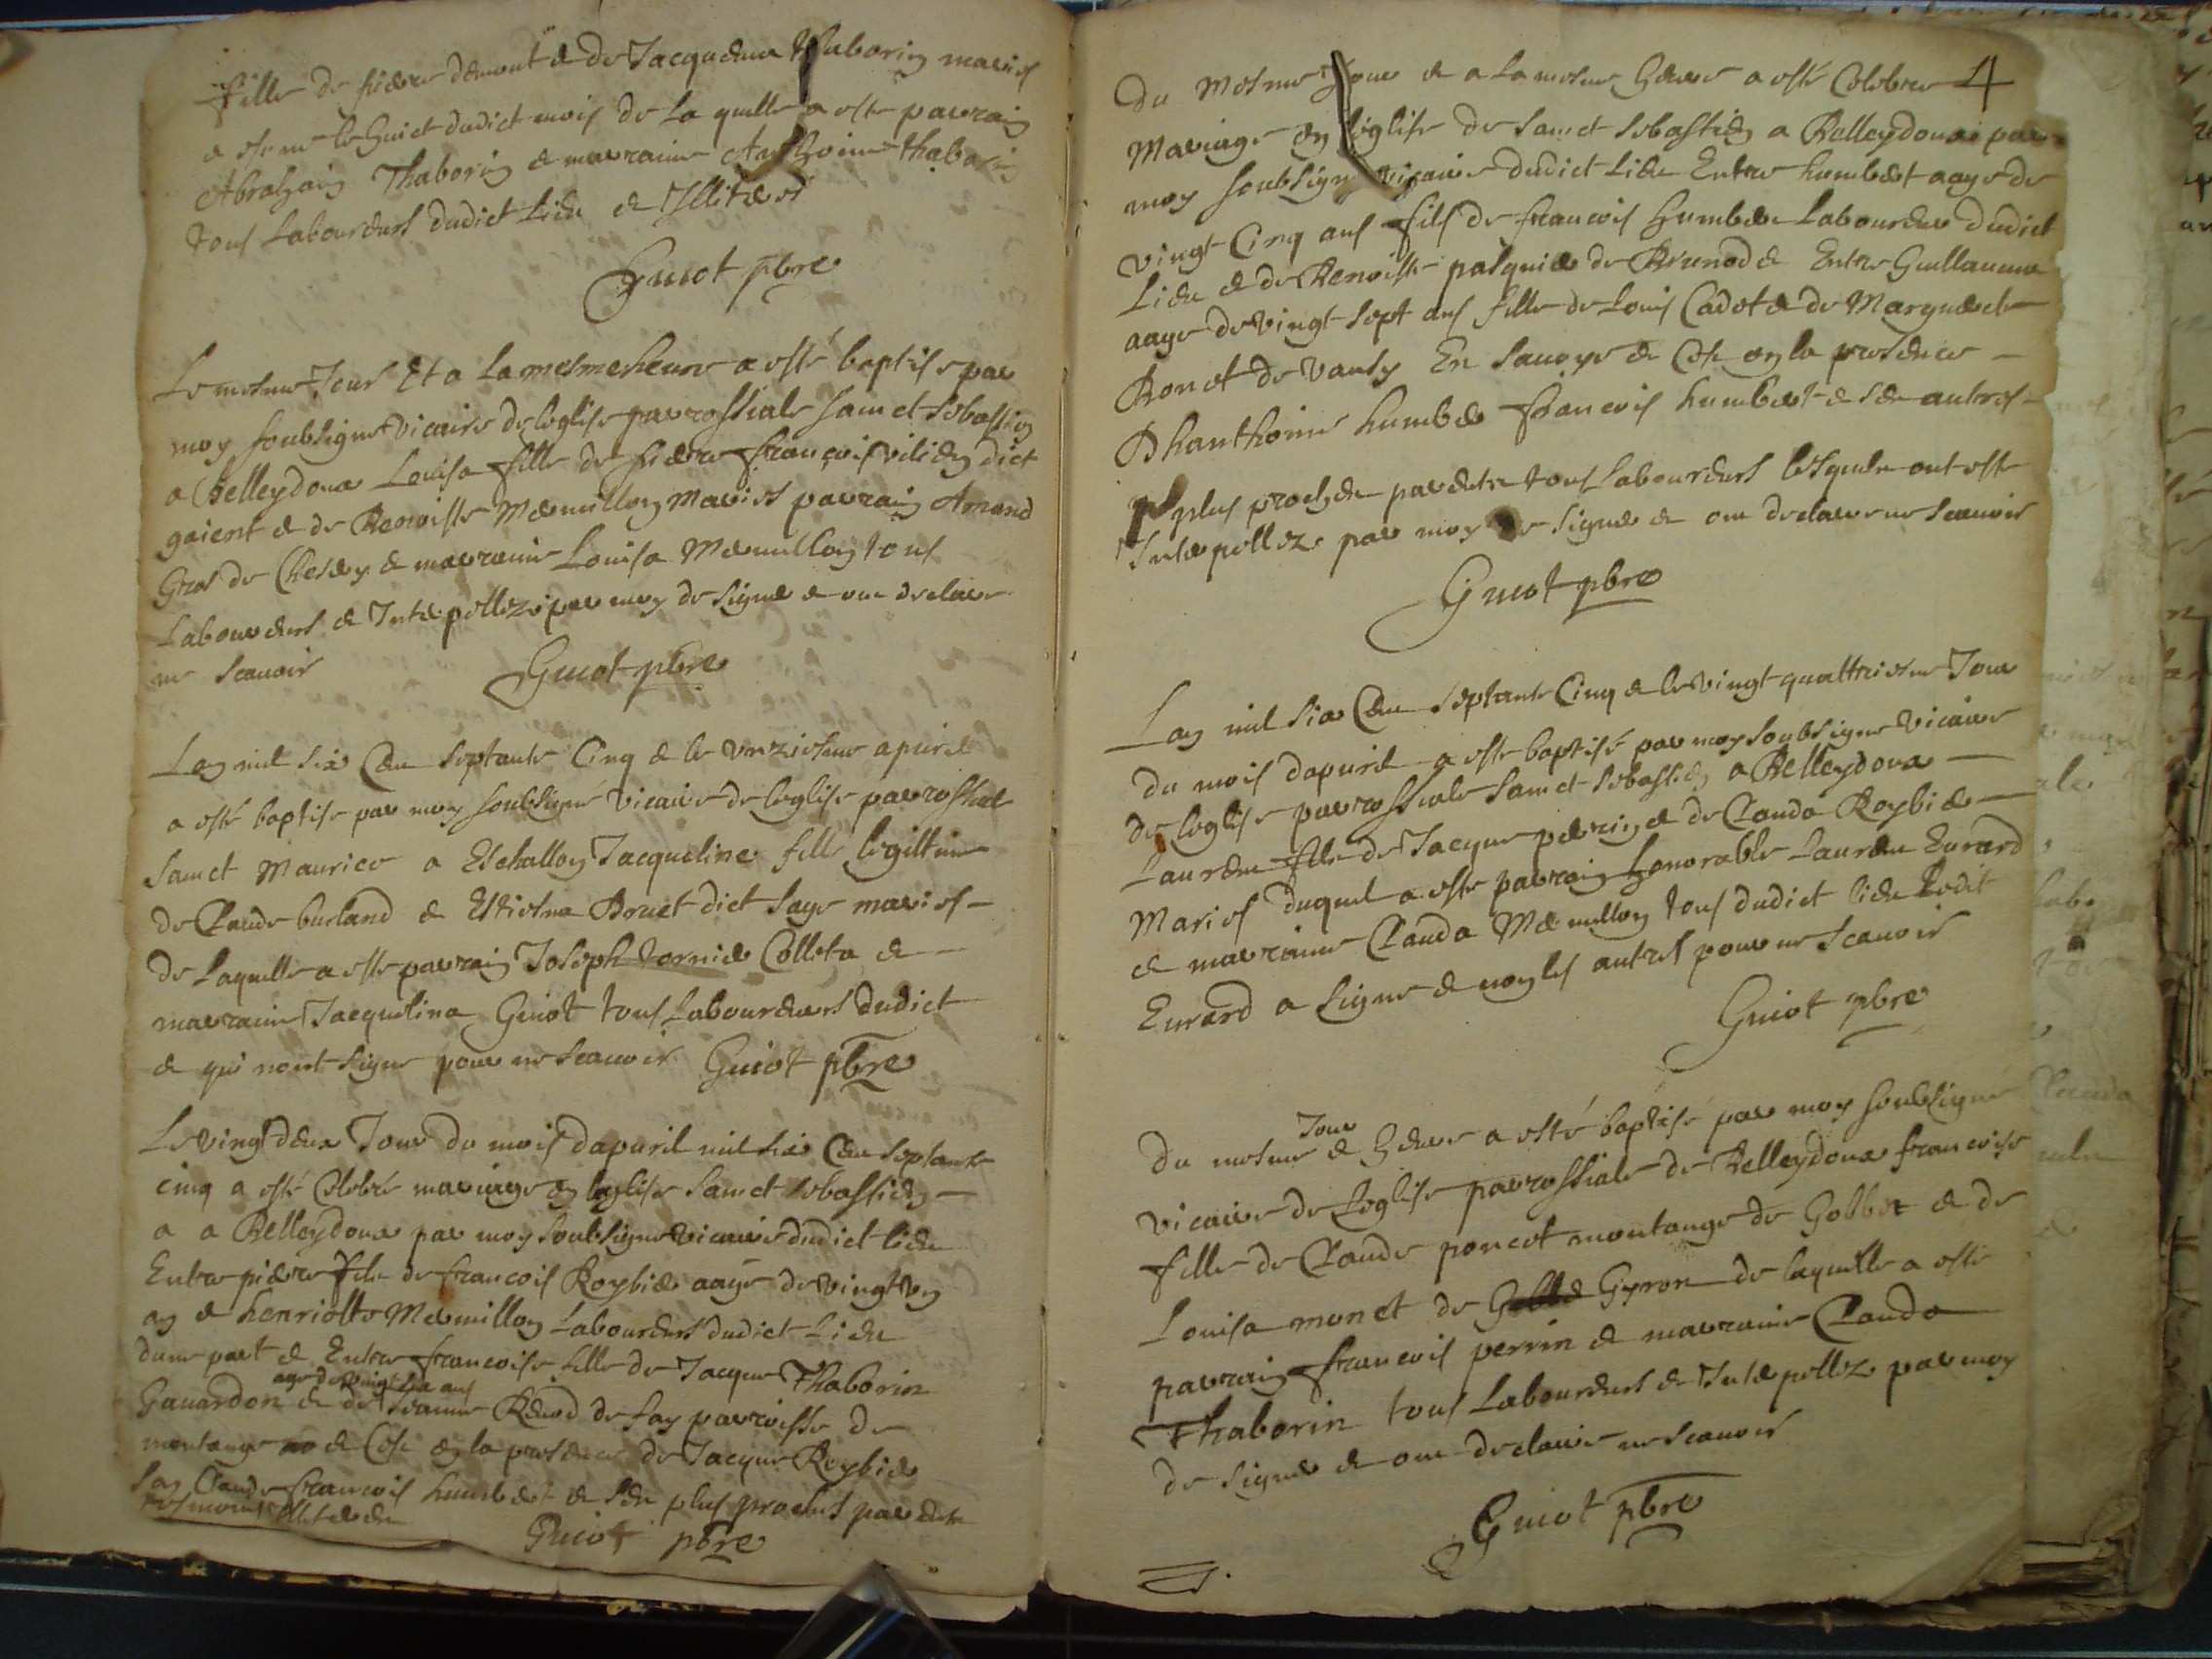 fille de pierre demont & de Jacquema Thaborin maries
a esté ne le huict dudict mois de la quelle a este parrain
Abrahain Thaborin & marraine Anthoinne thaborin
tous Laboureurs dudict Lieu & Illiteres
Guiot pbre
Le mesme Jour Et a la mesme heure a esté baptise par
moy soubsigne vicaire de leglise parrossiale sainct sebastien
a Belleydoux Louisa fille de pierre francois vilien dict
gaient & de Benoiste Mermillon maries parrain Amand
Gros de Chesery & marraine Louisa Mermillon tous
Laboureurs & Interpellez par moy de signer & on declare
ne scauoir
Guiot pbre
Lan mil six Cen septante Cinq & le vnziesme apuril
a esté baptise par moy soubsigné vicaire de leglise parrossial
sainct Maurice a Eschallon Jacqueline fille legittime
de Claude burland & Estiesna Bruet dict sage maries
de Laquelle a este parrain Joseph tornier Colleta &
marraine Jacquelina Guiot tous Laboureurs dudict
& qui nont signe pour ne scauoir Guiot pbre
Le vingt deux Jour du mois dapuril mil six Cen septante
cinq a esté Celebré mariage en leglise sainct sebastien
a a Belleydoux par moy soubsigne vicaire dudict lieu
Entre pierre fils de francois Roybier aagé de vingt vn
an & henriette Mermillon Laboureurs dudict Lieu
dune part & Entre francoise fille de Jacque Thaborin
age de vingt six ans
Gauardon & de Jeanne Renod de say parroisse de
montange & Ce en la presence de Jacque Roybier
Jan Claude francois humbert & des plus proches parents
tesmoins Illiteres
Guiot pbre
4
Du Mesme Jour & a la mesme heure a esté Celebre
Mariage en leglise de sainct sebastien a Belleydoux par
moy soubsigne vicaire dudict Lieu Entre humbert aage de
vingt Cinq ans fils de francois humbert Laboureur dudict
Lieu & de Benoiste pasquier de Brenod & Entre Guillauma
aage de vingt sept ans fille de Louis Cadot & de Marguerite
Bonet de vansy En sauoye & Ce en la presence
Dhanthoine humber francois humbert & des autres
plus proches parents tous Laboureurs lesquels ont este
Interpellez par moy de signer & on declare ne scauoir
Guiot pbre
Lan mil six Cen septante Cinq & le vingt quattriesme Jour
du mois dapuril a este baptisé par moy soubsigne vicaire
de leglise parrossiale sainct sebastien a Belleydoux
Lauren fils de Jacque perrin & de Clauda Roybier
Maries duquel a este parrain honorable Lauren Eurard
& marraine Clauda Mermillon tous dudict lieu Ledit
Eurard a signe & non les autres pour ne scauoir
Guiot pbre
Jour
Du mesme & heure a esté baptisé par moy soubsigné
vicaire de Leglise parrossiale de Belleydoux francoise
fille de Claude poncet montange de Gobbet & de
Louisa monet de Gyron de laquelle a esté
parrain francois perrin & marraine Clauda
Thaborin tous Laboureurs & Interpellez par moy
de signer & on declaire ne scauoir
Guiot pbre